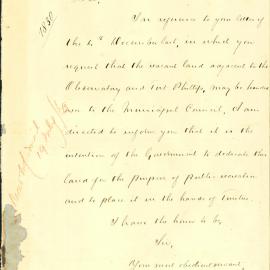 1880
In reference to your letter of
the 4th December last, in which you
request that the vacant land adjacent to the
Observatory and Fort Phillip, may be handed
over to the Municipal Council, I am
directed to inform you that it is the
intention of the Government to dedicate this
land for the purpose of public recreation
and to place it in the hands of Trustees.
I have the honor to be,
Sir,
Your most obedient servant,